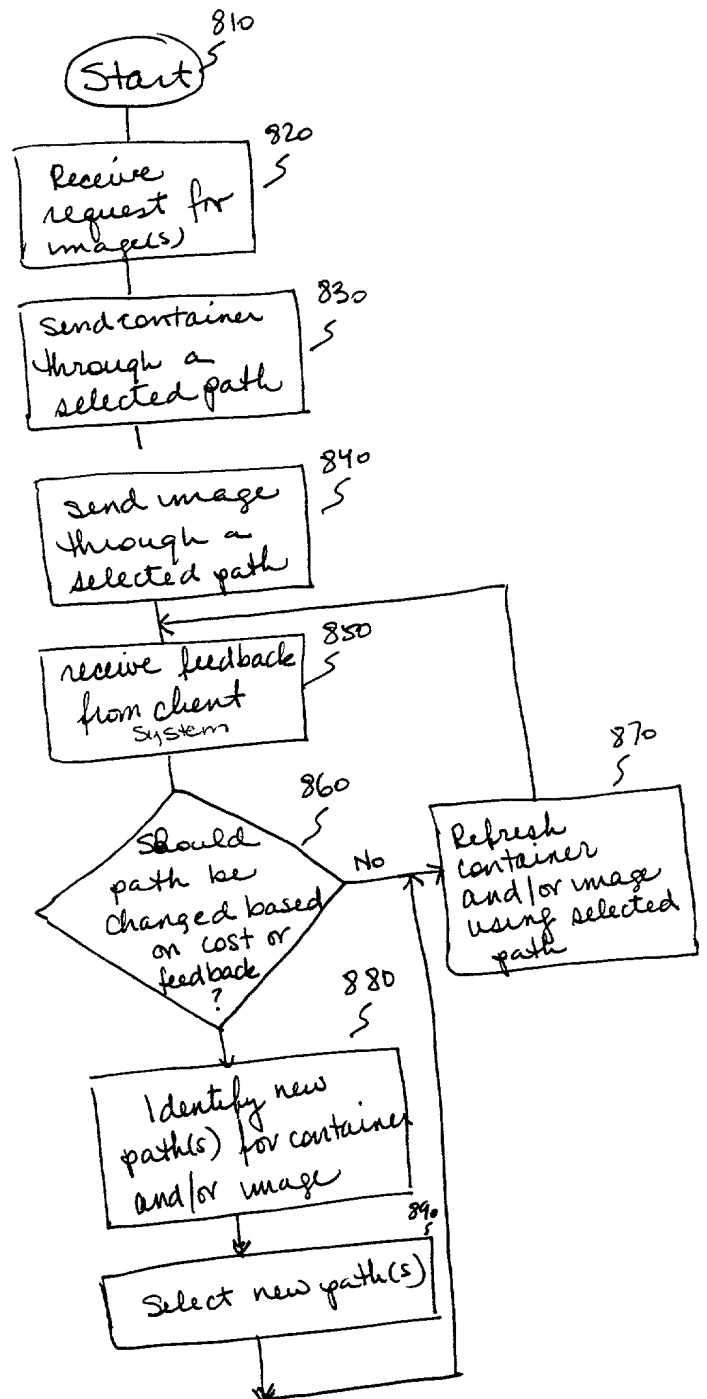 810
Start
820
Receive
request for
image(s)
830
send container
through a
selected path
840
send image
through a
selected path
850
receive feedback
from client
System
860
Should
path be
changed based
on cost or
feedback
?
No
870
Refresh
container
and/or image
using selected
path
880
Identify new
path(s) for container
and/or image
890
Select new path(s)